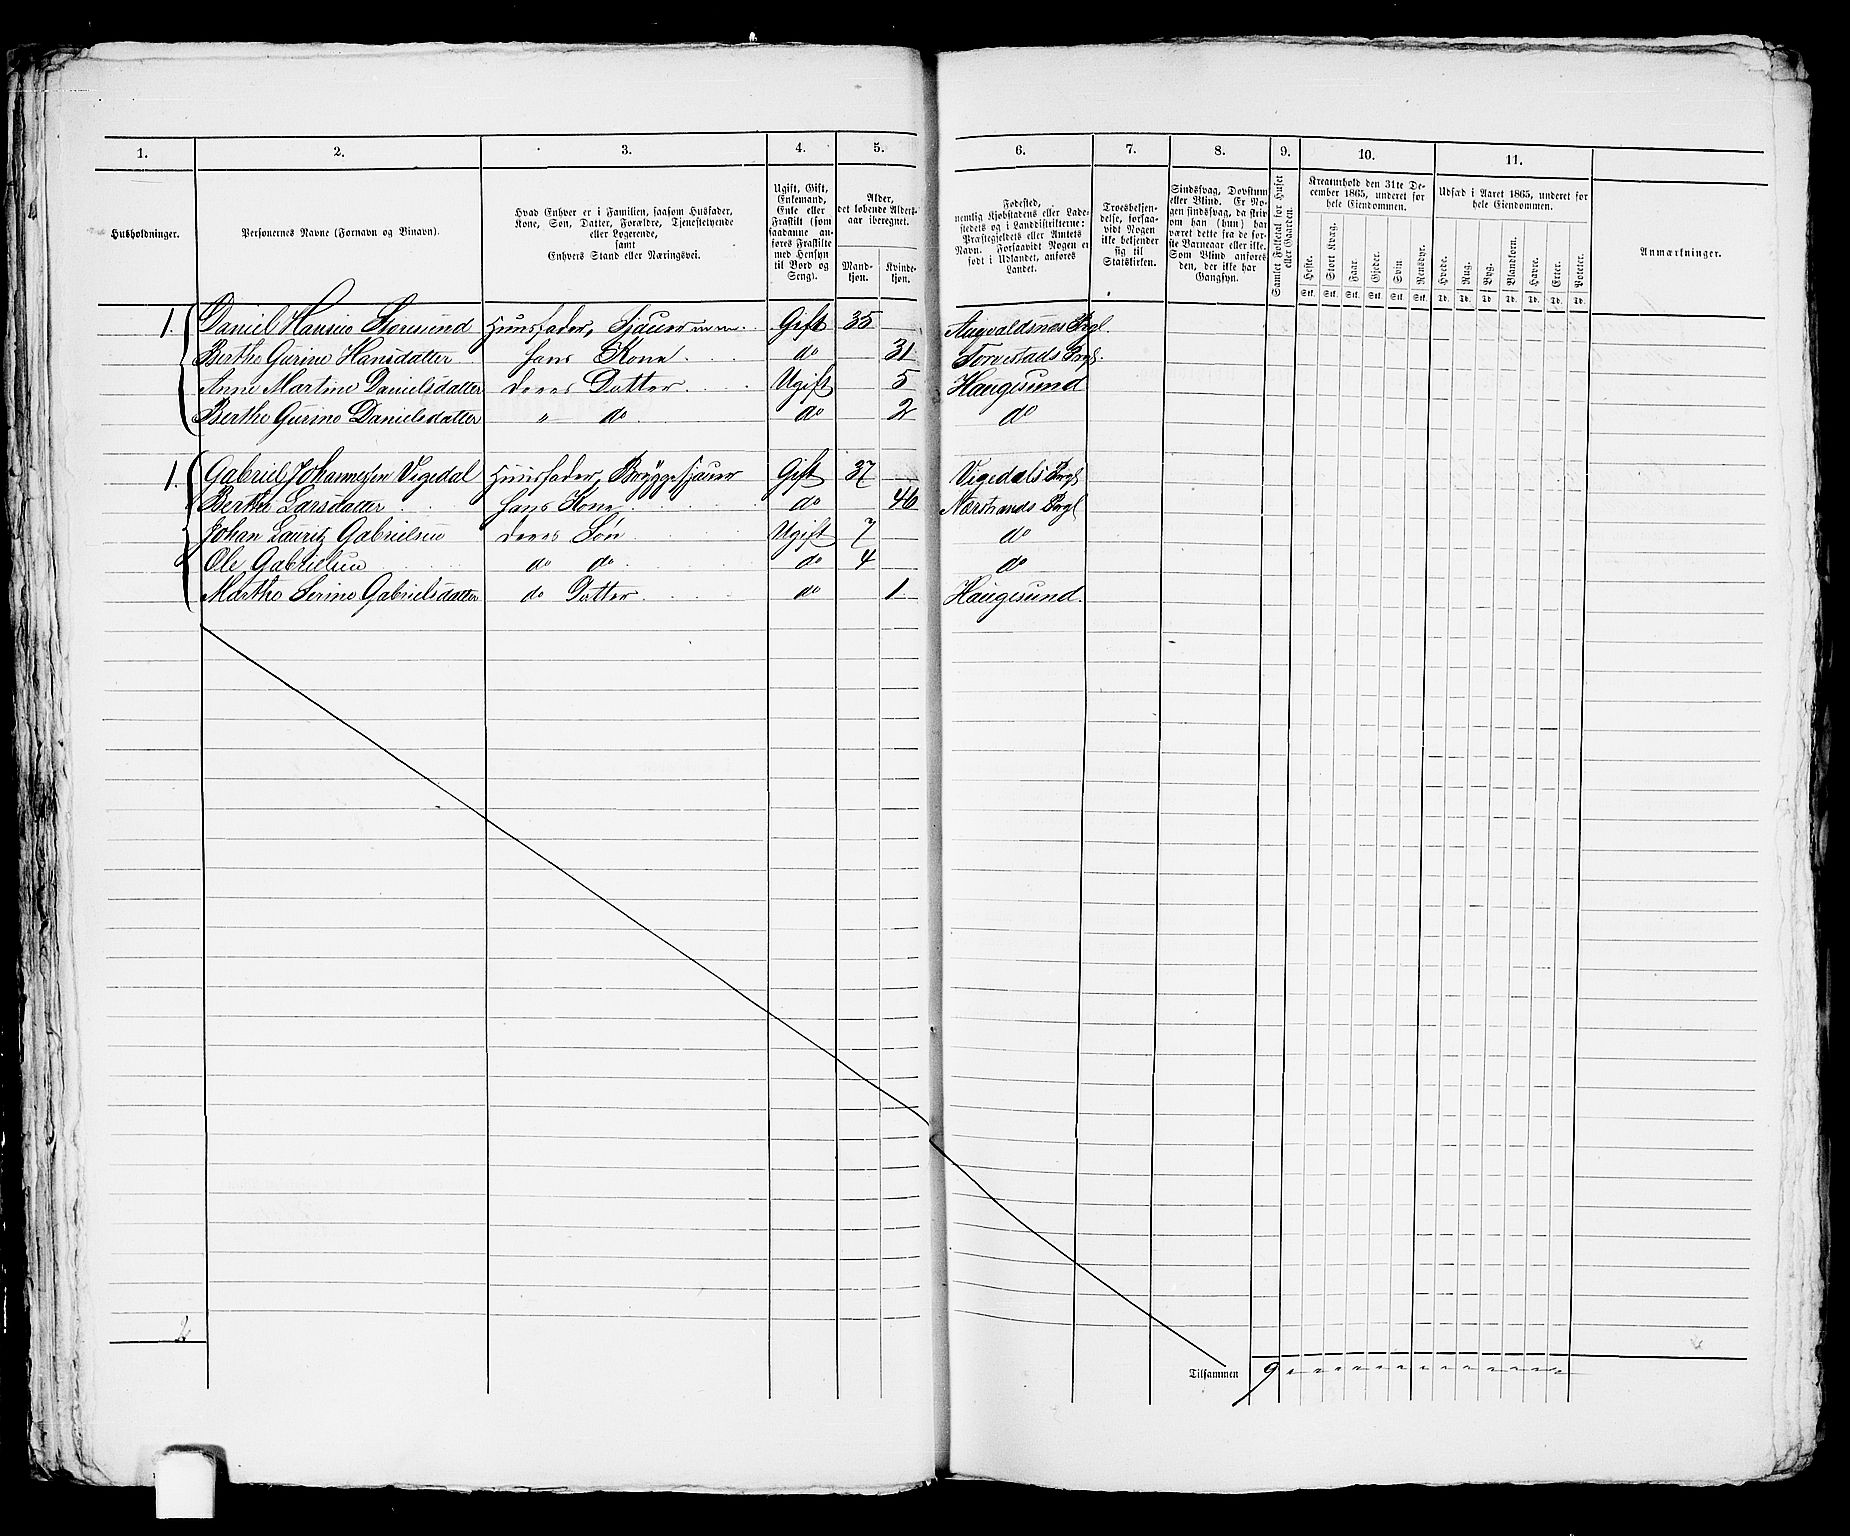 1. 2. 3. 4. 5. 6. 7. 8. 9. 10. 11.
Husholdninger.
Personernes Navne (Fornavn og Binavn).
Hvad Enhver er i Familien, saasom Husfader,
Kone, Søn, Datter, Forældre, Tjenestetyende
eller Logerende,
samt
Enhvers Stand eller Næringsvei.
Ugift, Gift,
Enkemand,
Enke eller
Fraskilt (som
saadanne an-
føres Fraskilte
med Hensyn
til Bord og
Seng).
Alder,
det løbende Alders-
aar iberegnet.
Mand-
kjøn.
Kvinde-
kjøn.
Fødested,
nemlig Kjøbstadens eller Lade-
stedets og i Landdistrikterne:
Præstegjeldets eller Amtets
Navn. Forsaavidt Nogen er
født i Udlandet, anføres
Landet.
Troesbekjen-
delse, forsaa-
vidt Nogen
ikke bekjender
sig til
Statskirken.
Sindssvag, Døvstum
eller Blind. Er No-
gen sindssvag, da skriv
om han (hun) har
været dette fra de før-
ste Barneaar eller ikke.
Som Blind anføres
den, der ikke har
Gangsyn.
Samlet Folketal for Huset
eller Gaarden.
Kreaturhold den 31te De-
cember 1865, underet for
hele Eiendommen.
Heste. Stort Kvæg. Faar. Gjeder. Svin. Rensdyr.
Stk. Stk. Stk. Stk. Stk. Stk.
Udsæd i Aaret 1865, underet for
hele Eiendommen.
Hvede. Rug. Byg. Blandkorn. Havre. Erter. Poteter.
Td. Td. Td. Td. Td. Td. Td.
Anmærkninger.
1. Daniel Hansen Storesund Huusfader, Sjauer Gift 35 Augvaldsnæs Prgl.
Berthe Gurine Hansdatter hans Kone do 31 Torvestads Prgl.
Anne Martine Danielsdatter deres Datter Ugift 5 Haugesund
Berthe Gurine Danielsdatter " do do 2 do
1. Gabriel Johannessen Vigedal Huusfader, Bryggesjauer Gift 37 Vigedals Prgl
Berthe Larsdatter hans Kone do 46 Nærstrands Prgl
Johan Lauritz Gabrielsen deres Søn Ugift 7 do
Ole Gabrielsen do do do 4 do
Marthe Serine Gabrielsdatter do Datter do 1 Haugesund.
2
Tilsammen 9